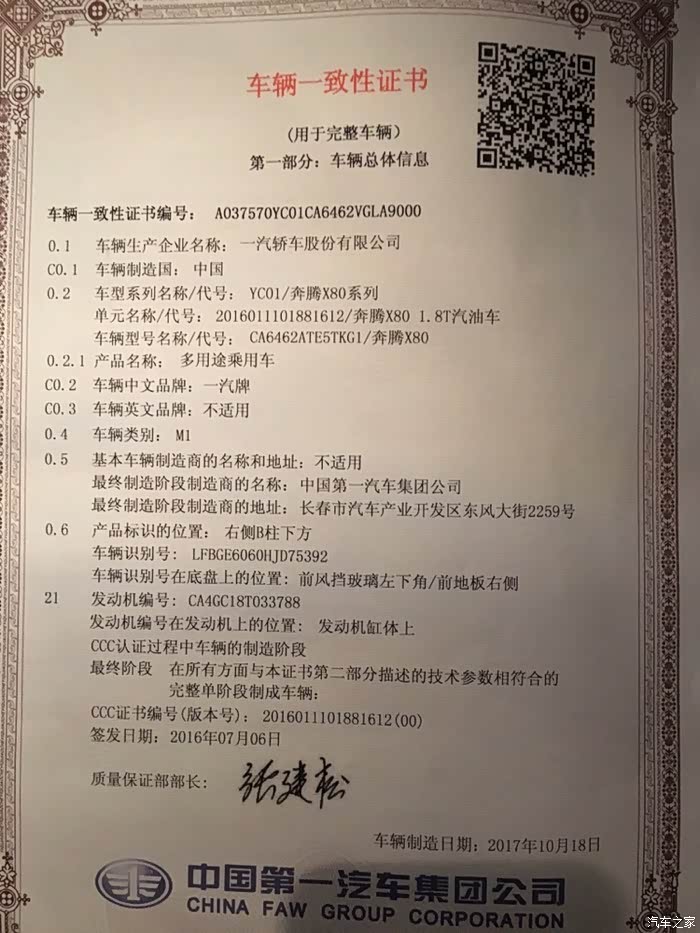 车辆一致性证书
(用于完整车辆)
第一部分：车辆总体信息
车辆一致性证书编号： A037570YC01CA6462VGLA9000
0.1 车辆生产企业名称： 一汽轿车股份有限公司
C0.1 车辆制造国： 中国
0.2 车型系列名称/代号： YC01/奔腾X80系列
单元名称/代号： 2016011101881612/奔腾X80 1.8T汽油车
车辆型号名称/代号： CA6462ATE5TKG1/奔腾X80
0.2.1 产品名称： 多用途乘用车
C0.2 车辆中文品牌：一汽牌
C0.3 车辆英文品牌：不适用
0.4 车辆类别： M1
0.5 基本车辆制造商的名称和地址：不适用
最终制造阶段制造商的名称： 中国第一汽车集团公司
最终制造阶段制造商的地址： 长春市汽车产业开发区东风大街2259号
0.6 产品标识的位置： 右侧B柱下方
车辆识别号： LFBGE6060HJD75392
车辆识别号在底盘上的位置: 前风挡玻璃左下角/前地板右侧
21 发动机编号: CA4GC18T033788
发动机编号在发动机上的位置: 发动机缸体上
CCC认证过程中车辆的制造阶段
最终阶段 在所有方面与本证书第二部分描述的技术参数相符合的
完整单阶段制成车辆:
CCC证书编号(版本号)： 2016011101881612(00)
签发日期: 2016年07月06日
质量保证部部长: 张建松
车辆制造日期: 2017年10月18日
中国第一汽车集团公司
CHINA FAW GROUP CORPORATION
汽车之家